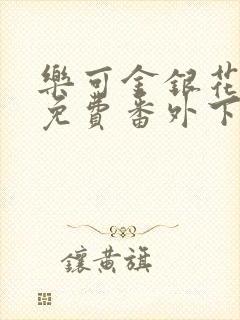 樂可金銀花
免費番外下
鑲黃旗